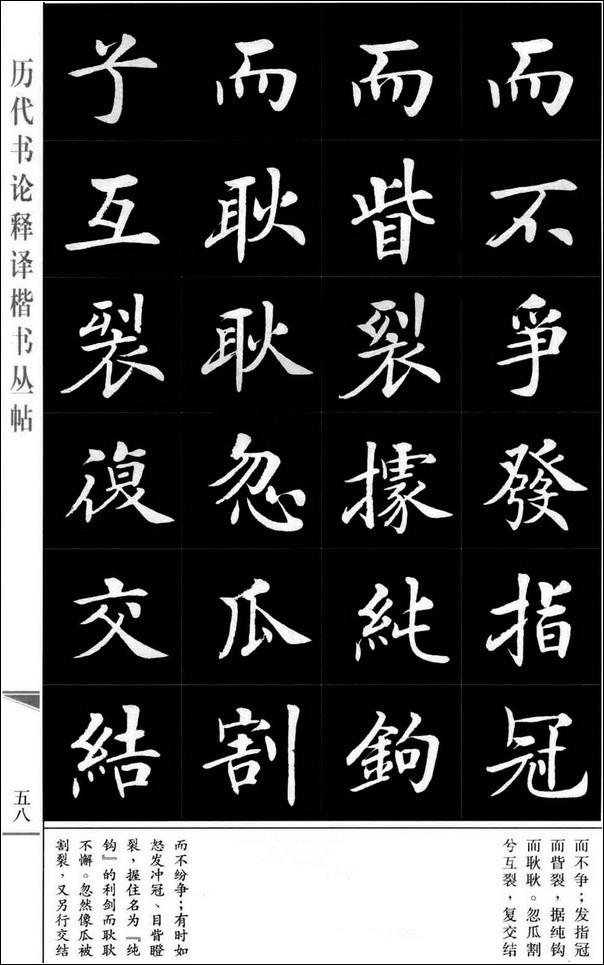 而不爭發指冠
而眥裂據純鉤
而耿耿忽瓜割
兮互裂復交結
历代书论释译楷书丛帖
五八
而不争；发指冠
而眥裂，据纯钩
而耿耿。忽瓜割
兮互裂，复交结
而不纷争；有时如
怒发冲冠、目眥瞪
裂，握住名为『纯
钩』的利剑而耿耿
不懈。忽然像瓜被
割裂，又另行交结